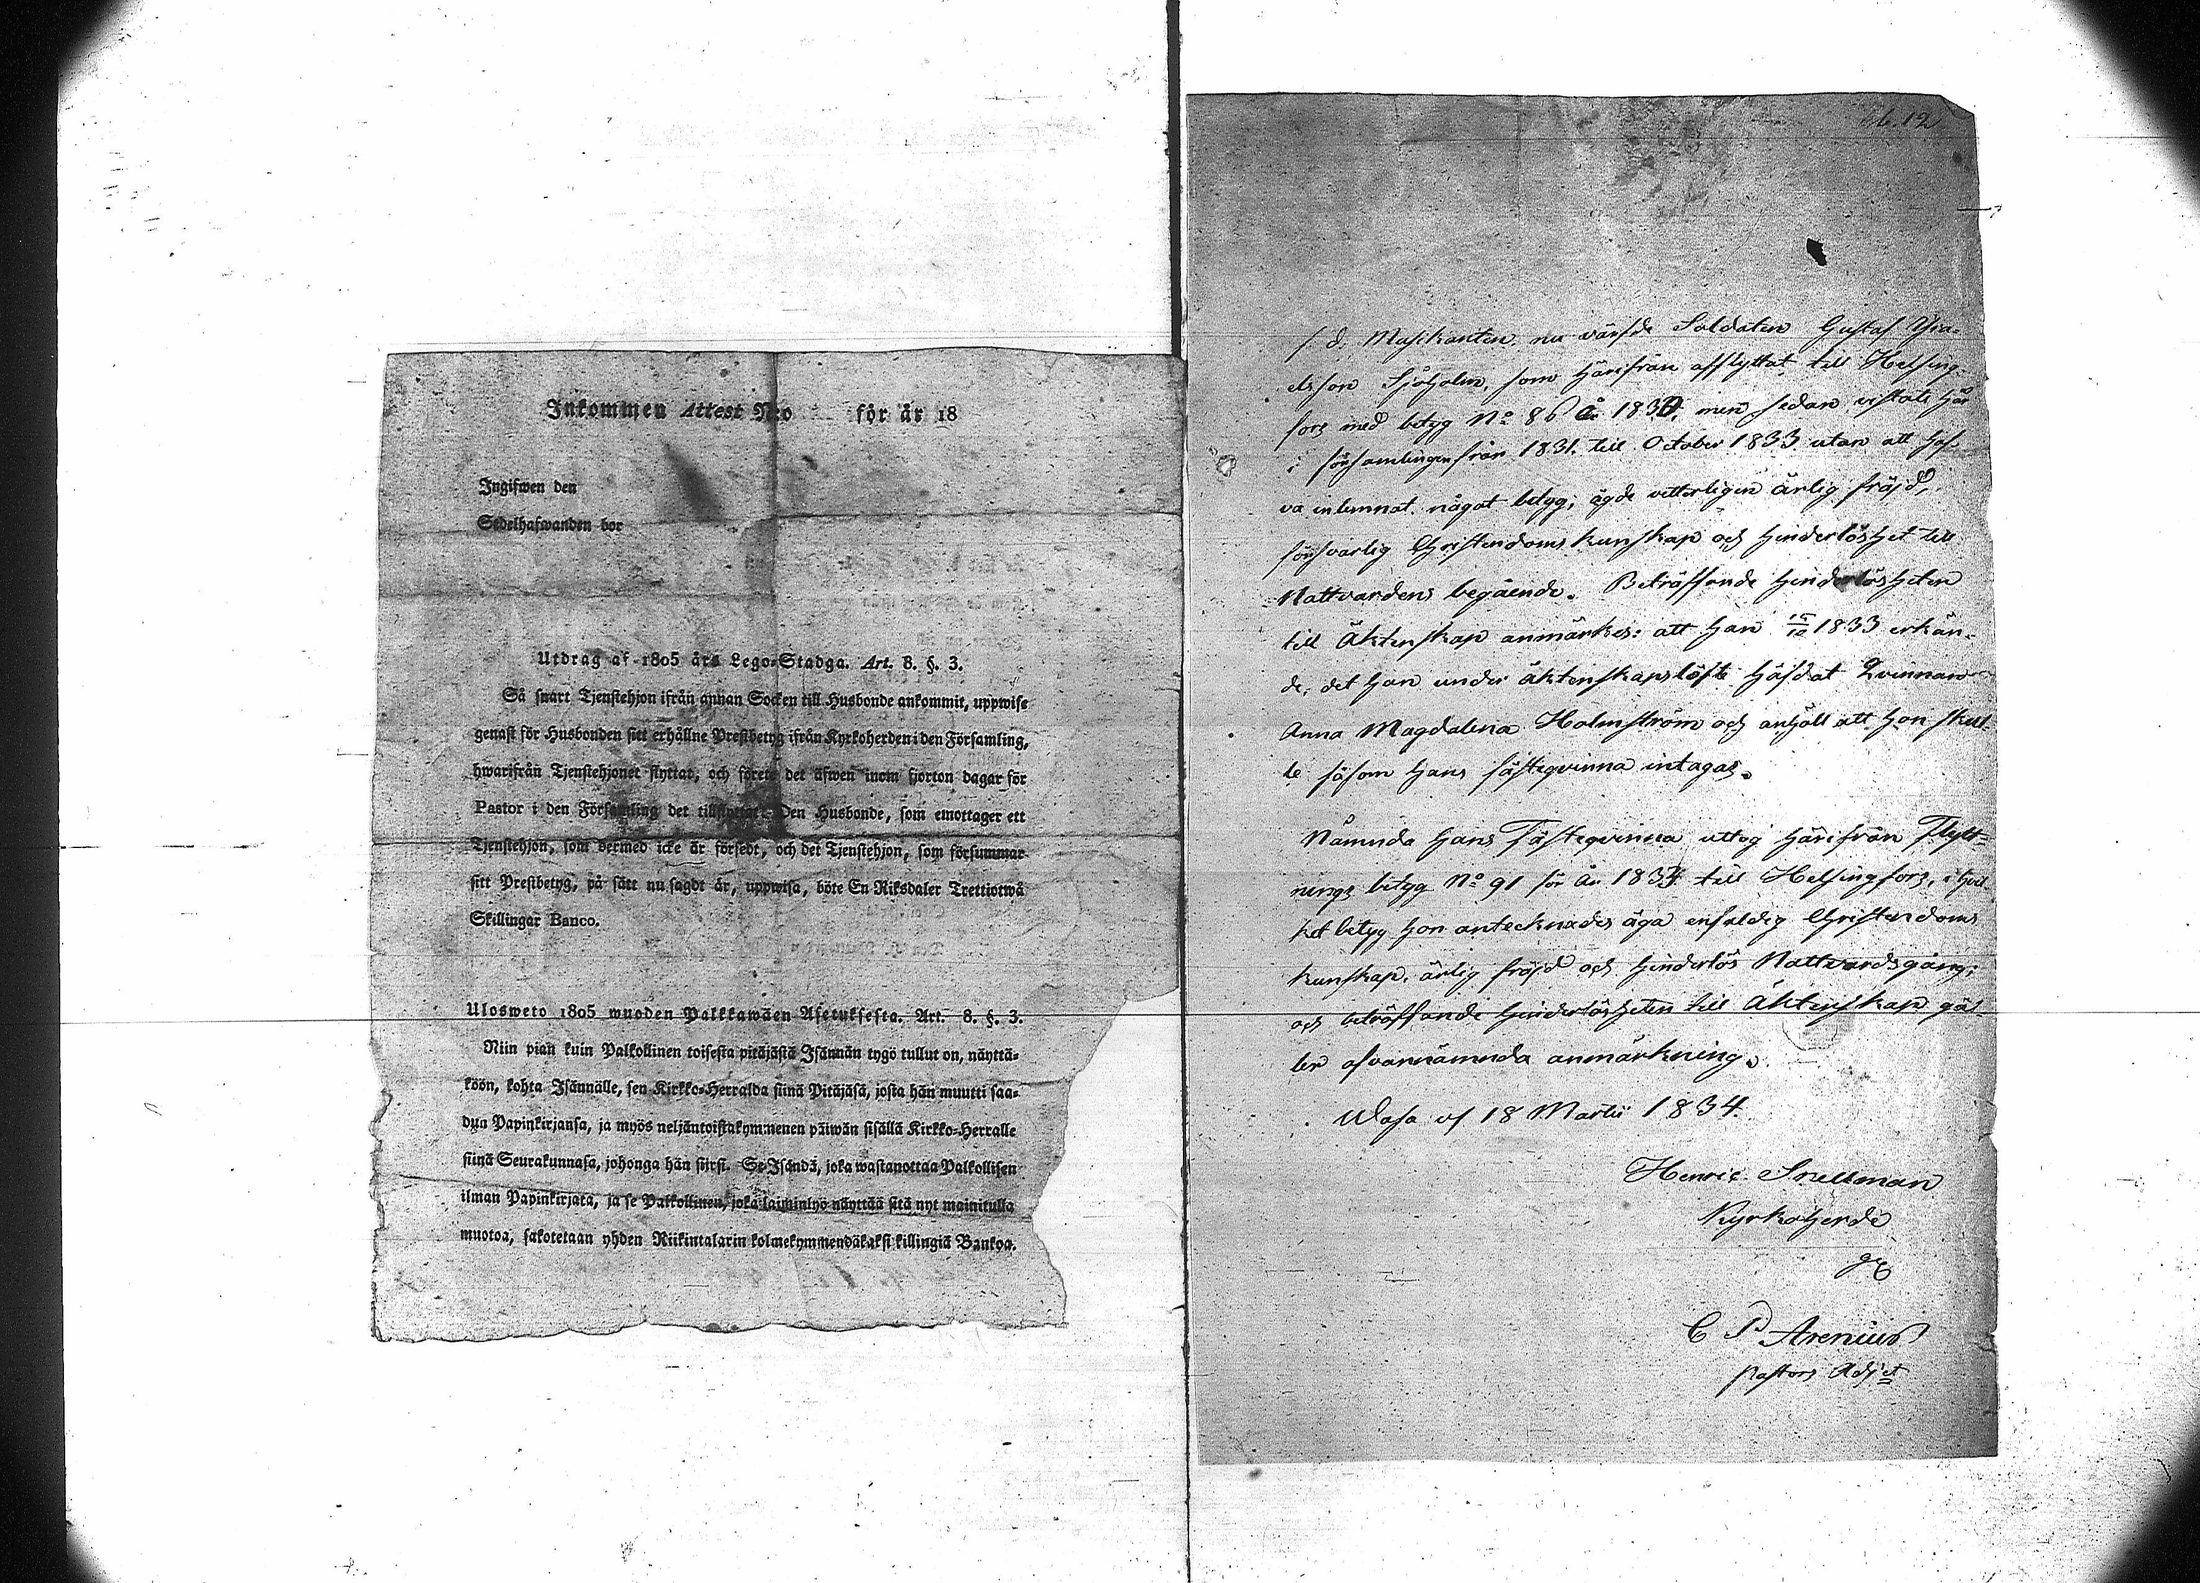 Inkommen Attest N:o för år 18
Ingifwen den
Sedelhafwanden bor
Utdrag af 1805 års Lego-Stadga. Art. 8. §. 3.
Så snart Tjenstehjon ifrån annan Socken till Husbonde ankommit, uppwise
genast för Husbonden sitt erhållne Prestbetyg ifrån Kyrkoherden i den Församling,
hwarifrån Tjenstehjonet flyttat, och förete det äfwen inom fjorton dagar för
Pastor i den Församling det tillflyttat. Den Husbonde, som emottager ett
Tjenstehjon, som dermed icke är försedt, och det Tjenstehjon, som försummar
sitt Prestbetyg, på sätt nu sagdt är, uppwisa, böte En Riksdaler Trettiotwå
Skillingar Banco.
Ulosweto 1805 wuoden Palkkawäen Asetuksesta. Art. 8. §. 3.
Niin pian kuin Palkollinen toisesta pitäjästä Isännän tygö tullut on, näyttä-
köön, kohta Isännälle, sen Kirkko-Herralda siinä Pitäjäsä, josta hän muutti saa-
dun Papinkirjansa, ja myös neljäntoistakymmenen päiwän sisällä Kirkko-Herralle
siinä Seurakunnasa, johonga hän siirsi. Se Isändä, joka wastanottaa Palkollisen
ilman Papinkirjata, ja se Palkollinen, joka laiminlyö näyttää sitä nyt mainitulla
muotoa, sakotetaan yhden Riikintalarin kolmekymmendäkaksi killingiä Bankoa.
b. 12
f d. Musikanten nu värfde Soldaten Gustaf
elsson Sjöholm, som härifrån afflyttat till Helsing-
fors med betyg No 86 år 1830, men sedan vistats här
i församlingen från 1831. till October 1833 utan att haf-
va inlemnat något betyg; ägde vetterligen ärlig fräjd,
försvarlig Christendoms kunskap och hinderlöshet till
Nattvardens begående. Beträffande hinderlösheten
till Äktenskap anmärkes: att han 1833 erkän-
de, det han under äktenskapslöfte häfdat Qvinnan
Anna Magdalena Holmström och anhöll att hon skul-
le såsom hans fästeqvinna intagas.
Nämnda hans Fästeqvinna uttog härifrån Flytt-
nings betyg No 91 för år 1833 till Helsingfors, i hvil-
ket betyg hon antecknades äga enfaldig Christendoms
kunskap, ärlig fräjd och hinderlös Nattvardsgång;
och beträffande hinderlösheten till Äktenskap gäl-
ler ofvannämnda anmärkning.
Wasa af 18 Martii 1834.
Henric Snellman
Kyrkoherde
C P Arenius
Pastors Adjct